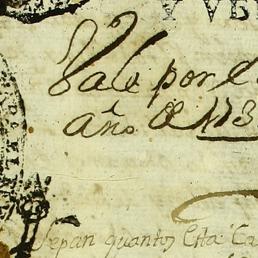 Y VE
Vale por el
año de 173
Sepan quantos esta Ca